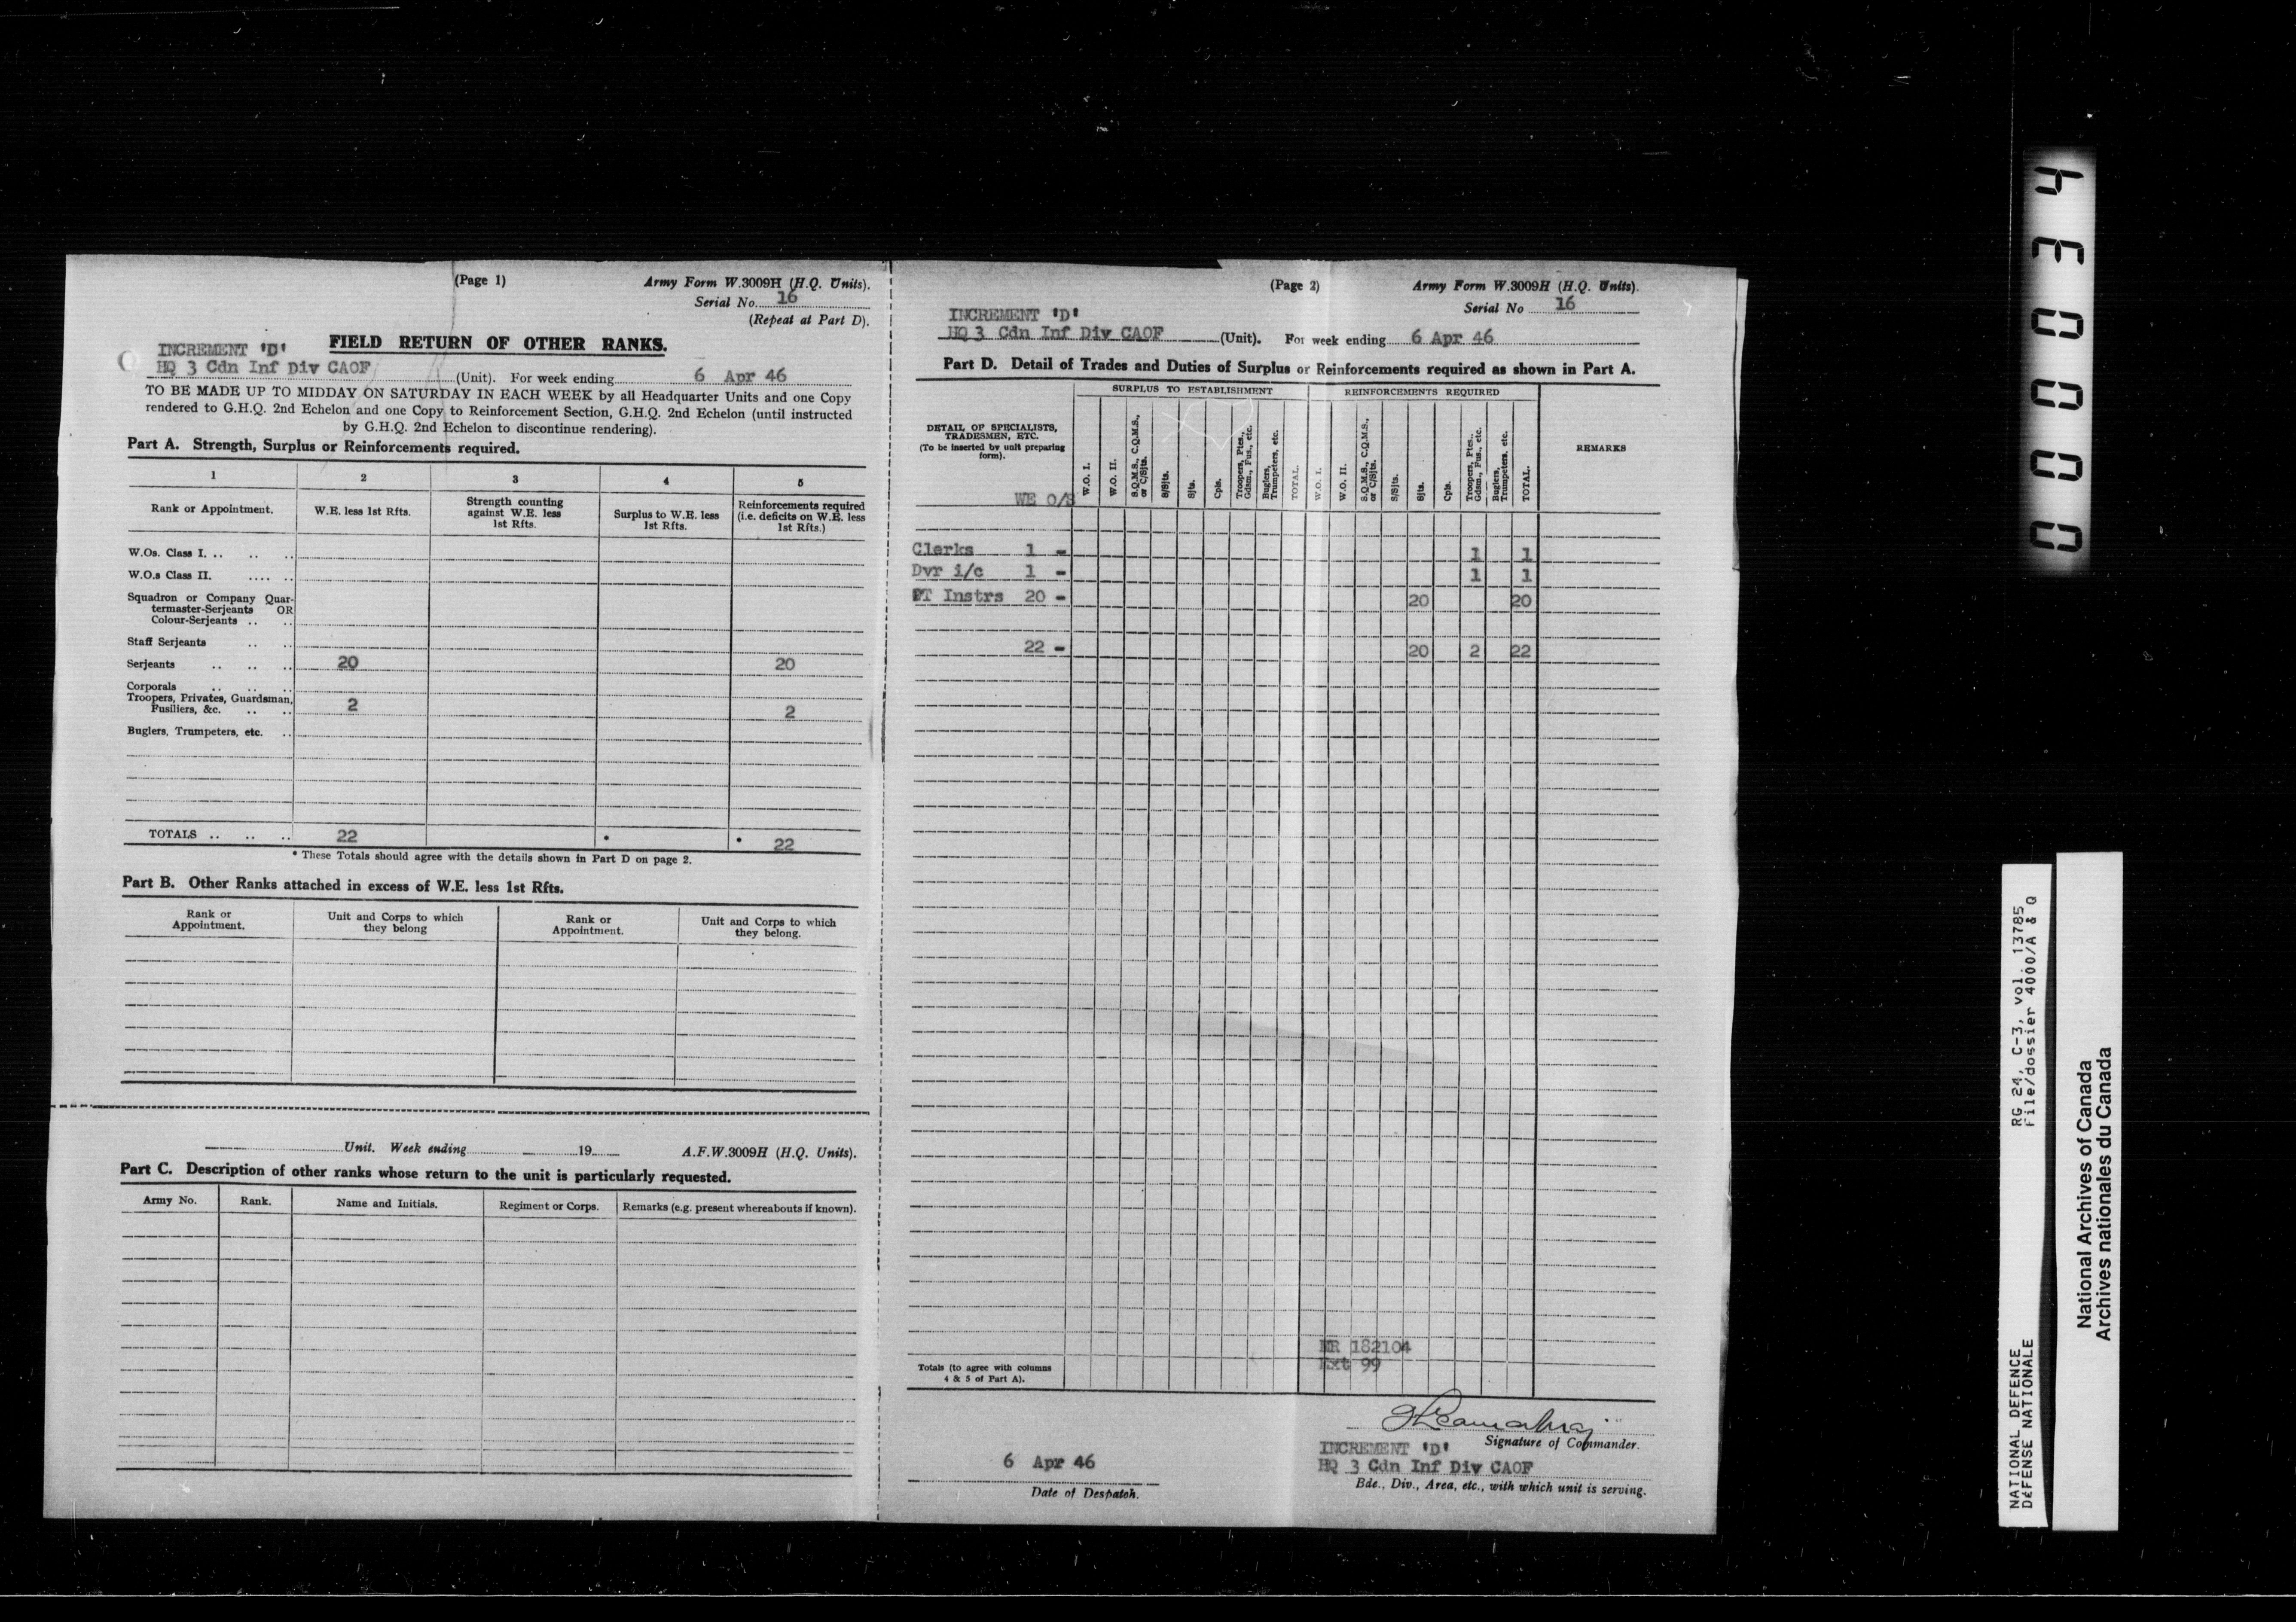 (Page 1) Army Form W.3009H (H.Q. Units).
Serial No. 16
(Repeat at Part D).
FIELD RETURN OF OTHER RANKS.
INCREMENT 'D'
HQ 3 Cdn Inf Div CAOF (Unit). For week ending 6 Apr 46
TO BE MADE UP TO MIDDAY ON SATURDAY IN EACH WEEK by all Headquarter Units and one Copy
rendered to G.H.Q. 2nd Echelon and one Copy to Reinforcement Section, G.H.Q. 2nd Echelon (until instructed
by G.H.Q. 2nd Echelon to discontinue rendering).
Part A. Strength, Surplus or Reinforcements required.
1 2 3 4 5
Rank or Appointment.
W.E. less 1st Rfts.
Strength counting
against W.E. less
1st Rfts.
Surplus to W.E. less
1st Rfts.
Reinforcements required
(i.e. deficits on W.E. less
1st Rfts.)
W.Os. Class I. .. .. ..
W.O.s Class II. .... ..
Squadron or Company Quar-
termaster-Serjeants OR
Colour-Serjeants .. ..
Staff Serjeants .. ..
Serjeants .. .. .. 20 20
Corporals .. .. ..
Troopers, Privates, Guardsman,
Fusiliers, &c. .. .. 2 2
Buglers, Trumpeters, etc. ..
TOTALS .. .. .. 22 * * 22
* These Totals should agree with the details shown in Part D on page 2.
Part B. Other Ranks attached in excess of W.E. less 1st Rfts.
Rank or
Appointment.
Unit and Corps to which
they belong
Rank or
Appointment.
Unit and Corps to which
they belong.
Unit. Week ending 19 A.F.W.3009H (H.Q. Units).
Part C. Description of other ranks whose return to the unit is particularly requested.
Army No. Rank. Name and Initials. Regiment or Corps. Remarks (e.g. present whereabouts if known).
(Page 2) Army Form W.3009H (H.Q. Units).
Serial No 16
INCREMENT 'D'
HQ 3 Cdn Inf Div CAOF (Unit). For week ending 6 Apr 46
Part D. Detail of Trades and Duties of Surplus or Reinforcements required as shown in Part A.
SURPLUS TO ESTABLISHMENT REINFORCEMENTS REQUIRED
DETAIL OF SPECIALISTS,
TRADESMEN, ETC.
(To be inserted by unit preparing
form).
WE O/S
W.O. I.
W.O. II.
S.Q.M.S., C.Q.M.S.,
or C/Sjts.
S/Sjts.
Sjts.
Cpls.
Troopers, Ptes.,
Gdsm., Fus., etc.
Buglers,
Trumpeters, etc.
TOTAL.
W.O. I.
W.O. II.
S.Q.M.S., C.Q.M.S.,
or C/Sjts.
S/Sjts.
Sjts.
Cpls.
Troopers, Ptes.,
Gdsm., Fus., etc.
Buglers,
Trumpeters, etc.
TOTAL.
REMARKS
Clerks 1 - 1 1
Dvr i/c 1 - 1 1
PT Instrs 20 - 20 20
22 - 20 2 22
182104
Ext 99
Totals (to agree with columns
4 & 5 of Part A).
Signature of Commander.
INCREMENT 'D'
HQ 3 Cdn Inf Div CAOF
Bde., Div., Area, etc., with which unit is serving.
6 Apr 46
Date of Despatch.
000034
NATIONAL DEFENCE RG 24, C-3, vol. 13785
DÉFENSE NATIONALE File/dossier 4000/A & Q
National Archives of Canada
Archives nationales du Canada